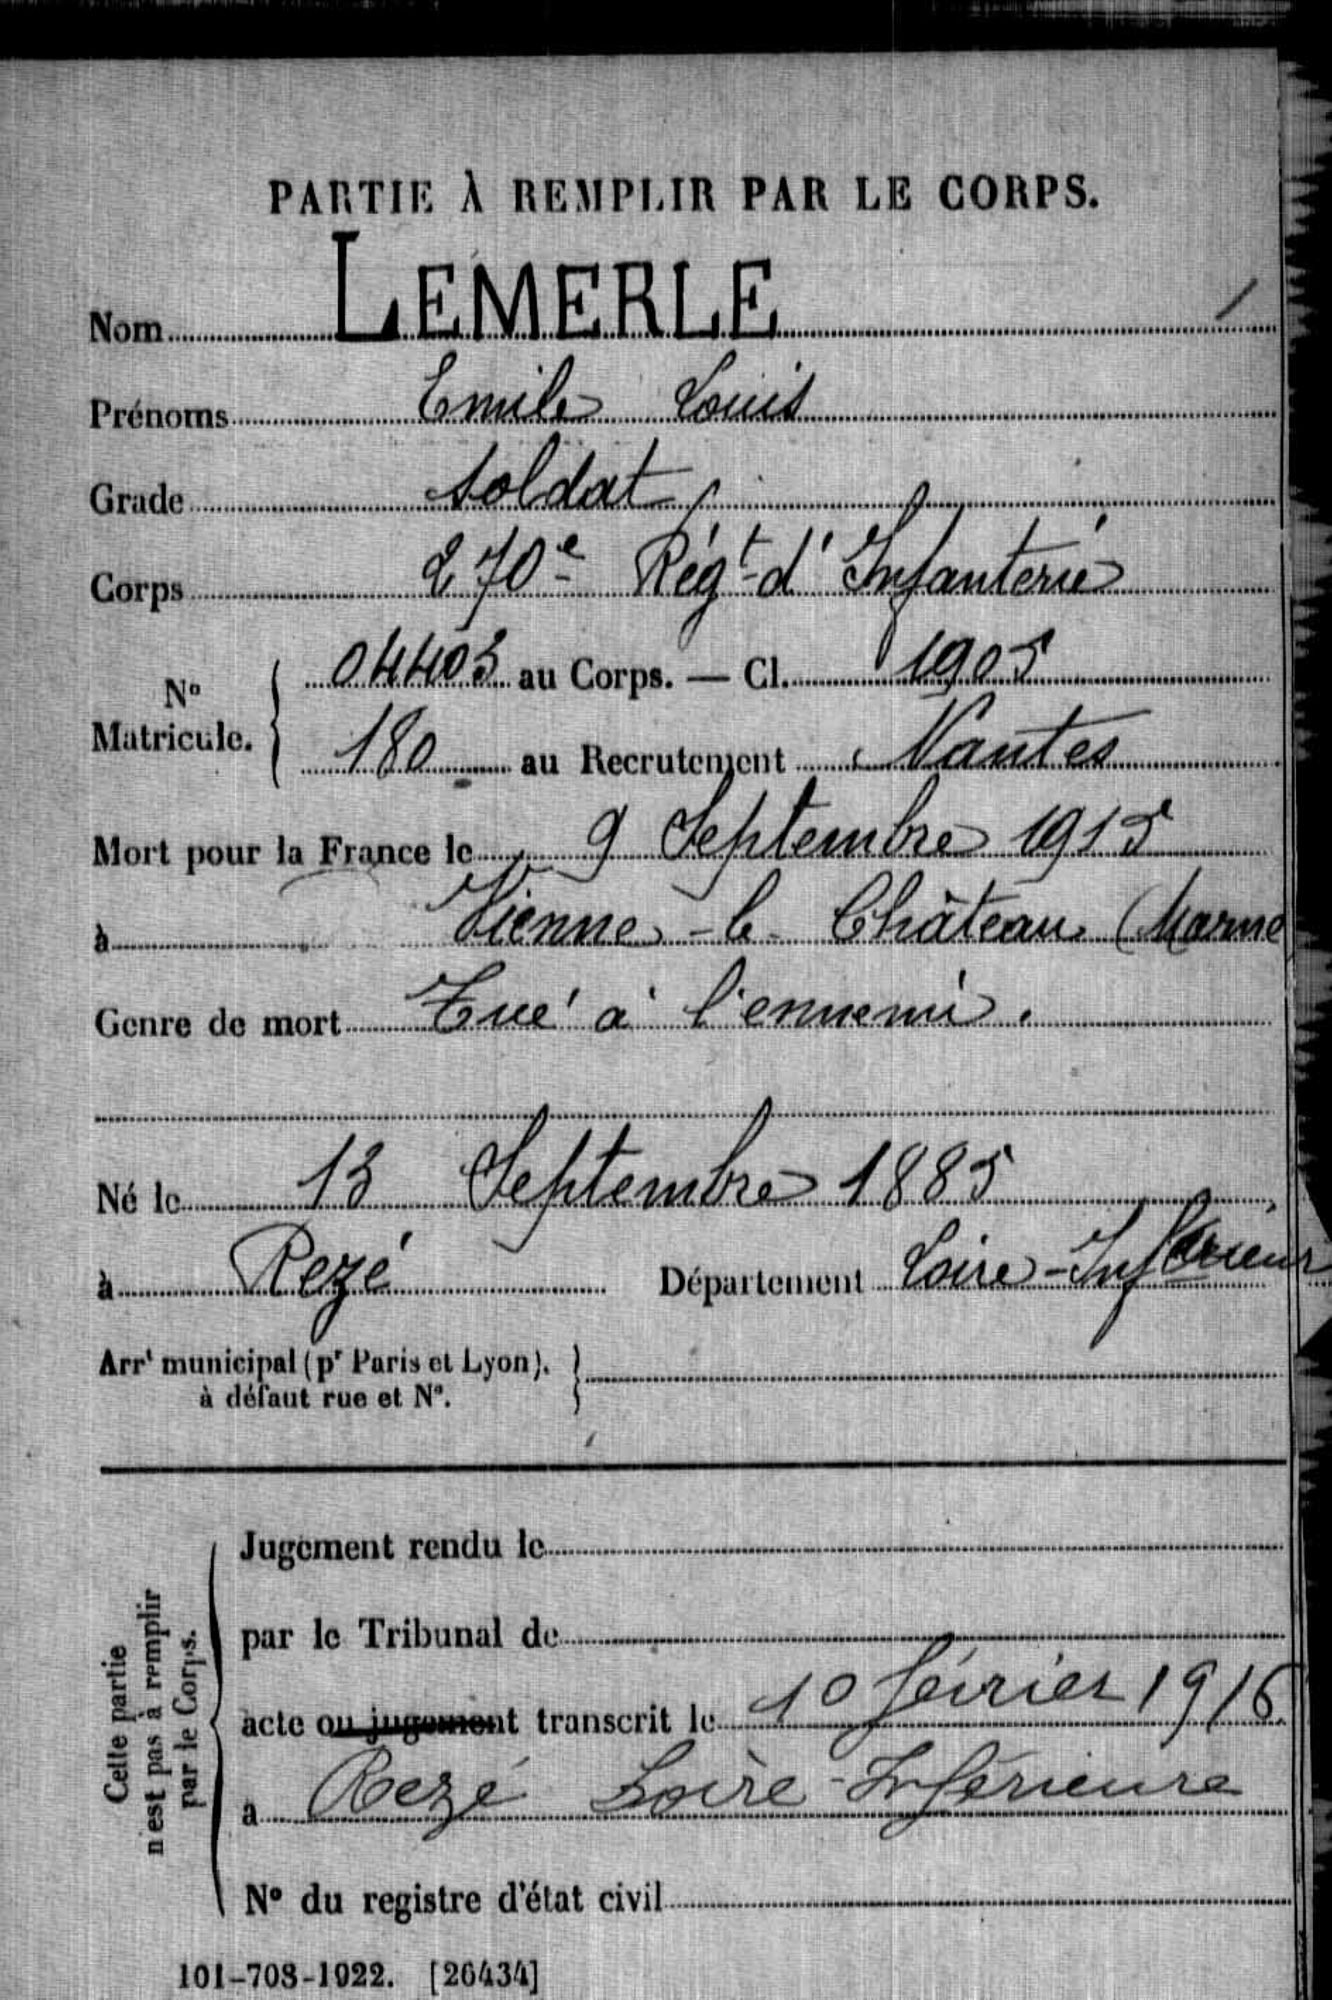 PARTIE À REMPLIR PAR LE CORPS.
Nom LEMERLE
Prénoms Emile Louis
Grade Soldat
Corps 270e Régt d'Infanterie
N° Matricule. 04403 au Corps. — Cl. 1905
180 au Recrutement Nantes
Mort pour la France le 9 Septembre 1915
à Vienne-le-Château (Marne
Genre de mort Tué à l'ennemi.
Né le 13 Septembre 1885
à Rezé Département Loire-Inférieur
Arrt municipal (pr Paris et Lyon).
à défaut rue et N°.
Cette partie
n'est pas à remplir
par le Corps.
Jugement rendu le
par le Tribunal de
acte ou jugement transcrit le 10 février 1916
à Rezé Loire-Inférieure
N° du registre d'état civil
101-708-1922. [26434]